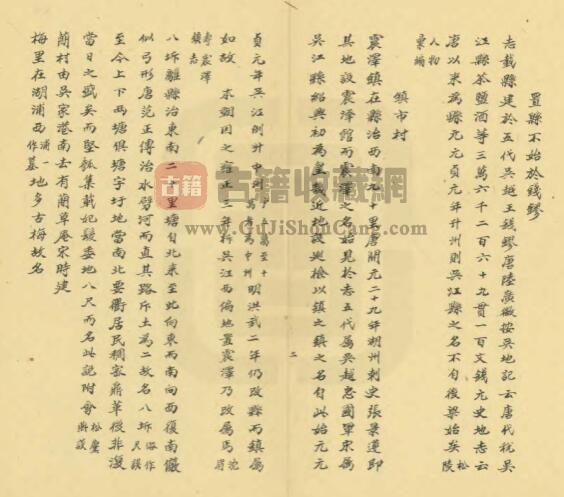 置縣不始於錢鏐
志載縣建於五代吳越王錢鏐唐陸廣微按吳地記云唐代稅吳
江縣茶鹽酒等三萬六千二百六十九貫一百文錢元史地志云
唐以來為縣元元貞元年升州則吳江縣之名不自後梁始矣 松陵
人物
彙編
鎮市村
震澤鎮在縣治西南九十里唐開元二十九年湖州刺史張景遵即
其地設震澤館而震澤之名始見於志五代屬吳越忠國軍宋屬
吳江縣紹興初為皇畿近地設巡檢以鎮之鎮之名自此始元元
貞元年吳江州升中州 五萬至十萬者為中州 明洪武二年仍改縣而鎮屬
如故 本朝因之雍正三年析吳江西偏地置震澤乃改屬焉 沈
壽震澤
鎮志
八坼離縣治東南二十里塘自北來至此向東而南向西復南儼
似弓形唐范正傳治水劈河而直其路斥土為二故名八坼 俗作尺誤
至今上下兩塘俱塘字圩地當南北要衝居民稠密鼎革後非復
當日之盛矣而堅瓠集載妃髮委地八尺而名此說附會
蘭村由吳家港南去有蘭草庵宋時建
梅里在湖浦西 浦一作墓 地多古梅故名
古籍 古籍收藏网
www.GuJiShouCang.com